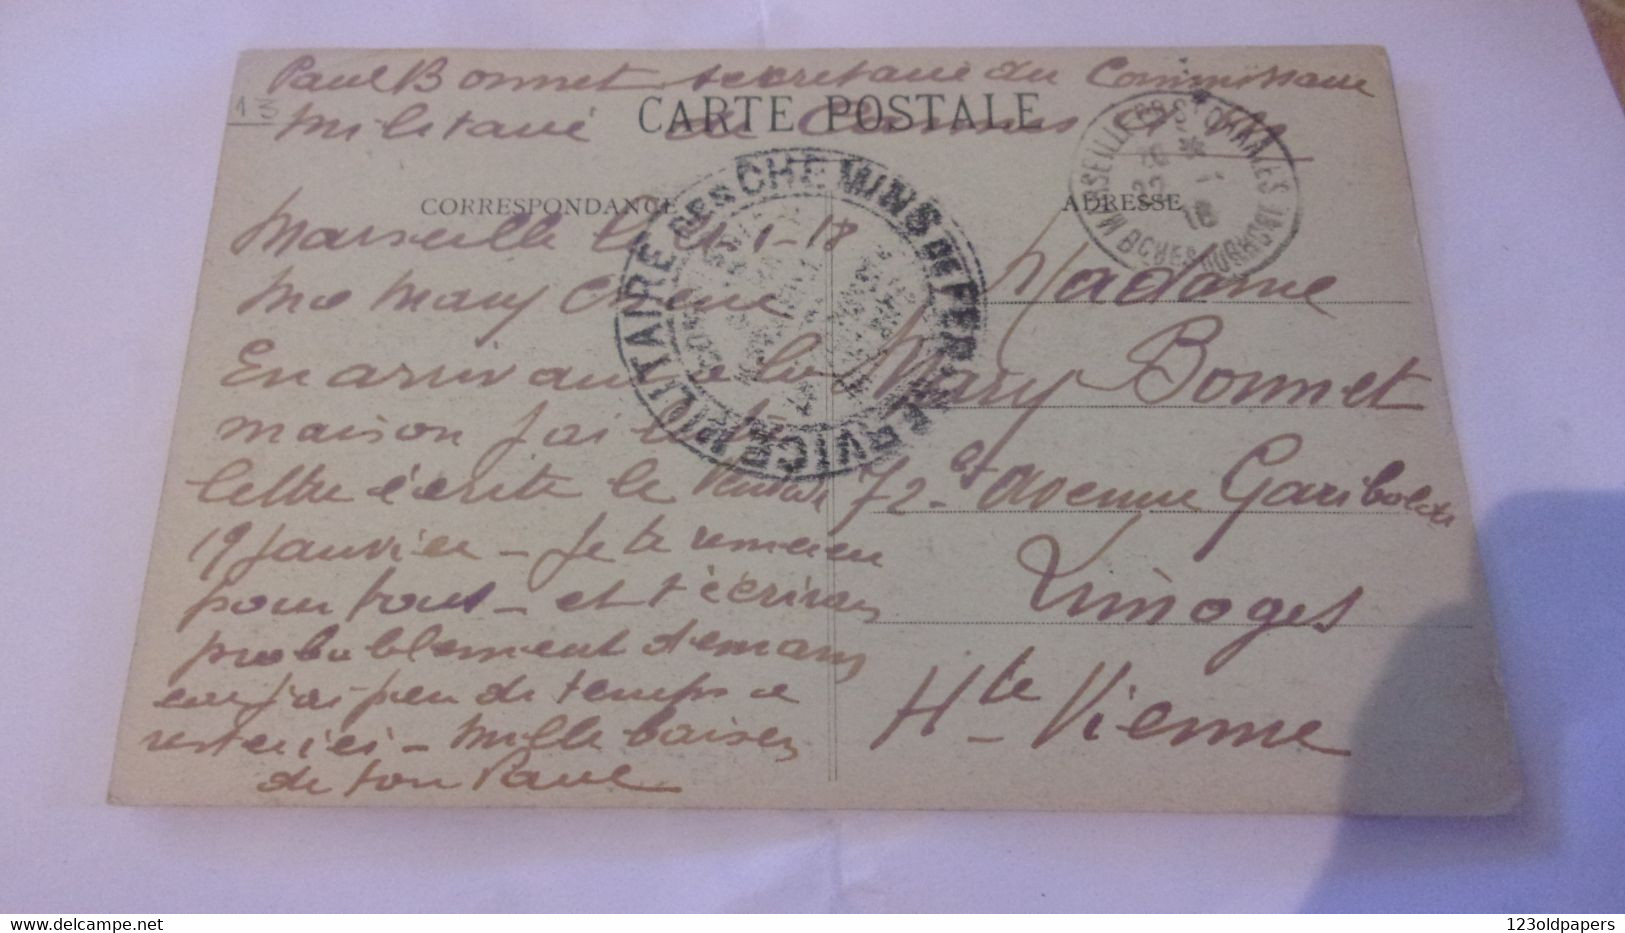 Paul Bonnet secretaire du Commissaire
Militaire de
CARTE POSTALE
13
MARSEILLE GARE ST CHARLES
BCHES DU RHONE
22
1
18
SERVICE MILITAIRE DES CHEMINS DE FER
CORRESPONDANCE
ADRESSE
Marseille le 21-1-18
Ma Mary Cherie
En arrivant à la
maison j'ai lu ta
lettre écrite le
19 Janvier - Je te remercie
pour tout - et t'écrirai
probablement demain
car j'ai peu de temps a
rester ici - Mille baisers
de ton Paul
Madame
Mary Bonnet
72 avenue Garibaldi
Limoges
Hte Vienne
123oldpapers